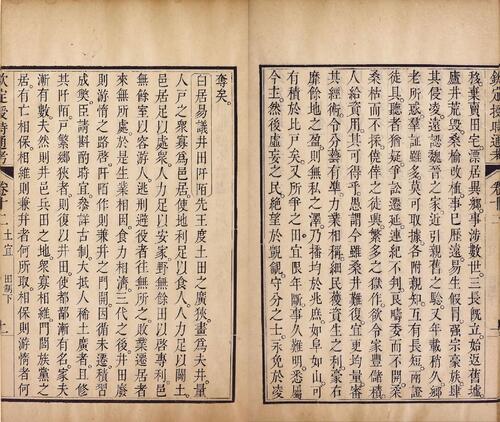 欽定授時通考 卷十
移棄賣田宅。漂居異鄉。事涉數世。三長既立。始返舊墟。
廬井荒毀。桑榆改植。事已歷遠。易生假冒。强宗豪族。肆
其侵凌。遠認魏晉之家。近引親舊之驗。又年載稍久。鄉
老所惑。羣證雖多。莫可取據。各附親知。互有長短。兩證
徒具。聽者猶疑。爭訟遷延。連紀不判。良疇委而不開。柔
桑枯而不採。僥倖之徒興。繁多之獄作。欲令家豐儲積。
人給資用。其可得乎。愚謂今雖桑井難復。宜更均量。審
其經術。令分藝有準。力業相稱。細民獲資生之利。豪右
靡餘地之盈。則無私之澤。乃播均於兆庶。如阜如山。可
有積於比戶矣。又所爭之田。宜限年斷。事久難明。悉屬
今主。然後虛妄之民。絕望於覬覦。守分之士。永免於凌
奪矣。
白居易議井田阡陌 先王度土田之廣狹。畫爲夫井。量
人戶之衆寡。爲邑居。使地利足以食人。人力足以闢土。
邑居足以處衆。人力足以安家。野無餘田以啓專利。邑
無餘室以容游人。逃刑避役者。往無所之。敗業遷居者。
來無所處。於是生業相因。食力相濟。三代之後。井田廢
則游惰之路啓。阡陌作則兼并之門開。因循未遷。積習
成獘。臣請斟酌時宜。參詳古制。大抵人稀土廣者。且修
其阡陌。戶繁鄉狹者。則復以井田。使都鄙漸有名。家夫
漸有數。夫然則井邑兵田之地。衆寡相維。門閭族黨之
居。有亡相保。相維則兼并者何所取。相保則游惰者何
欽定授時通考 卷十二 土宜 田制下 十一